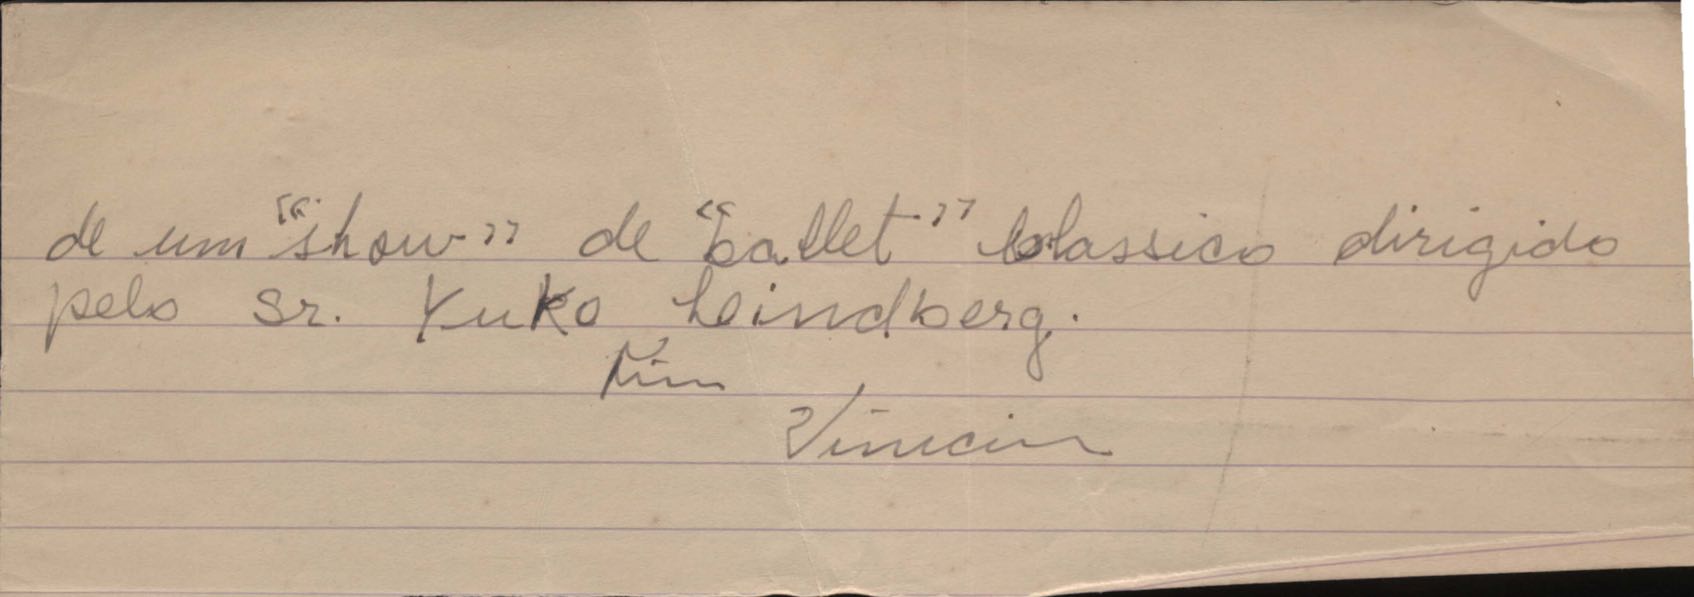 de um "show" de "ballet" classico dirigido
pelo sr. Yuko Leindberg.
Fim
Vinicius